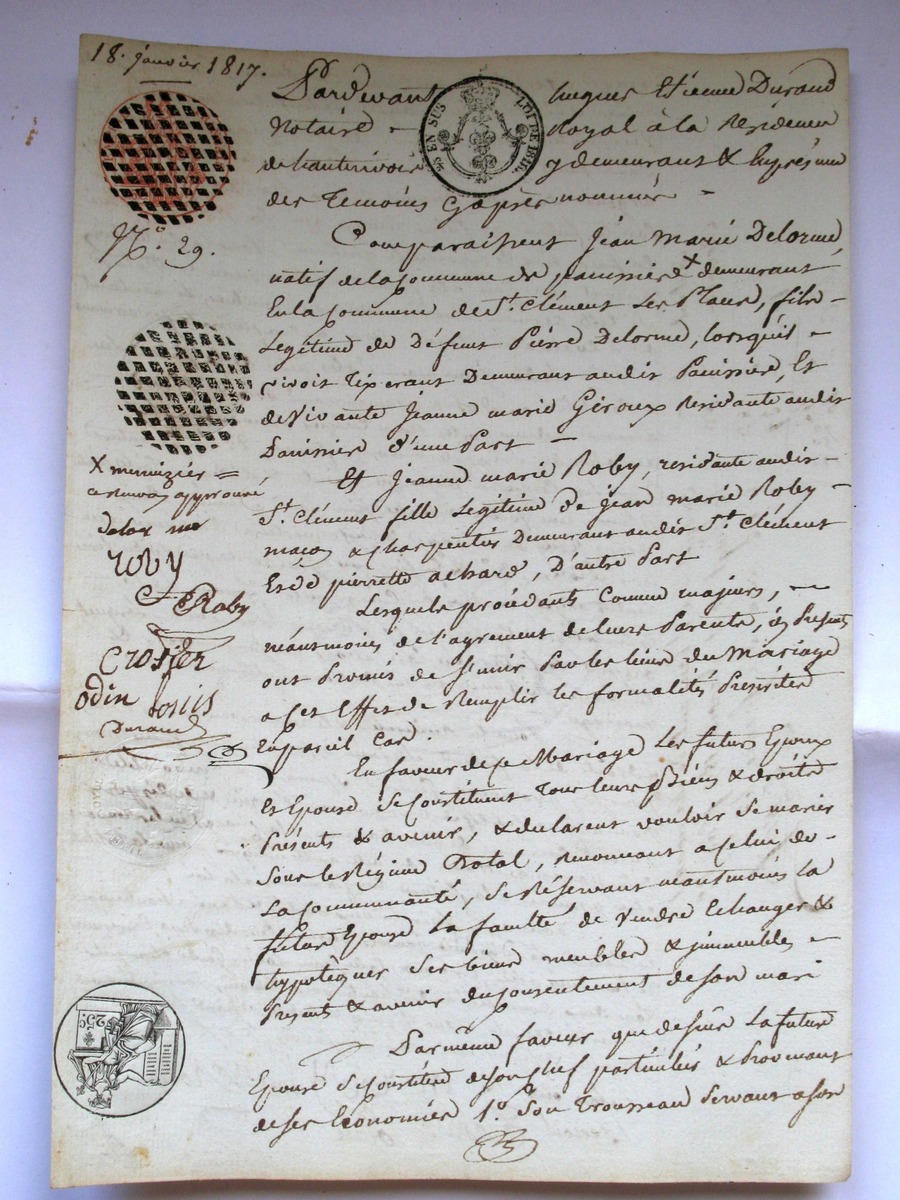 18. janvier 1817.
Pardevant hugues Etienne Durand
Notaire - Royal à la Residence
EN SUS LOI DE 1816
dehauterivoire y demeurant & En présence
des Temoins Cy après nommés -
N.o 29.
Comparaissent Jean Marie Delorme,
natif de la Commune de panissière x demeurant
En la Commune de St. Clément Les Places, fils
Legitime de Défunt Pierre Delorme, lorsquil
vivoit Tixerant Demeurant audit Panissière, Et
de Vivante Jeanne marie Giroux Residante audit
Panissière d'une Part -
Et Jeanne marie Roby, residante audit
St. Clément fille Legitime de Jean marie Roby
maçon & charpentier Demeurant audit St. Clément
Et de pierrette achard, D'autre Part
X menuizier =
ce renvoy approuvé
delor me
roby
Roby
Crosier
odin
Durand
Lesquels procédants Comme majeurs,
néantmoins de l'agrement de leurs Parents, ici Présents
ont Promis de S'unir Par les liens du Mariage
a Cet Effet de Remplir les formalités Prescrites
En pareil Cas.
En faveur de ce Mariage Les futurs Epoux
Et Epouse Se Constituent Tous leurs Biens & droits
Présents & avenir, & declarent vouloir Se marier
Sous le Régime Dotal, Renonceant a Celui de
La Communauté, Se Réservant néantmoins la
future Epouse La faculté de Vendre Echanger &
hypotèquer Ses biens meubles & immeubles
Présents & avenir du Consentement de Son mari
25c.
Par même faveur que dessus La future
Epouse Se Constitue de Son Chef particulier & Provenant
de Ses Economies 1.o Son Trousseau Servant a Son